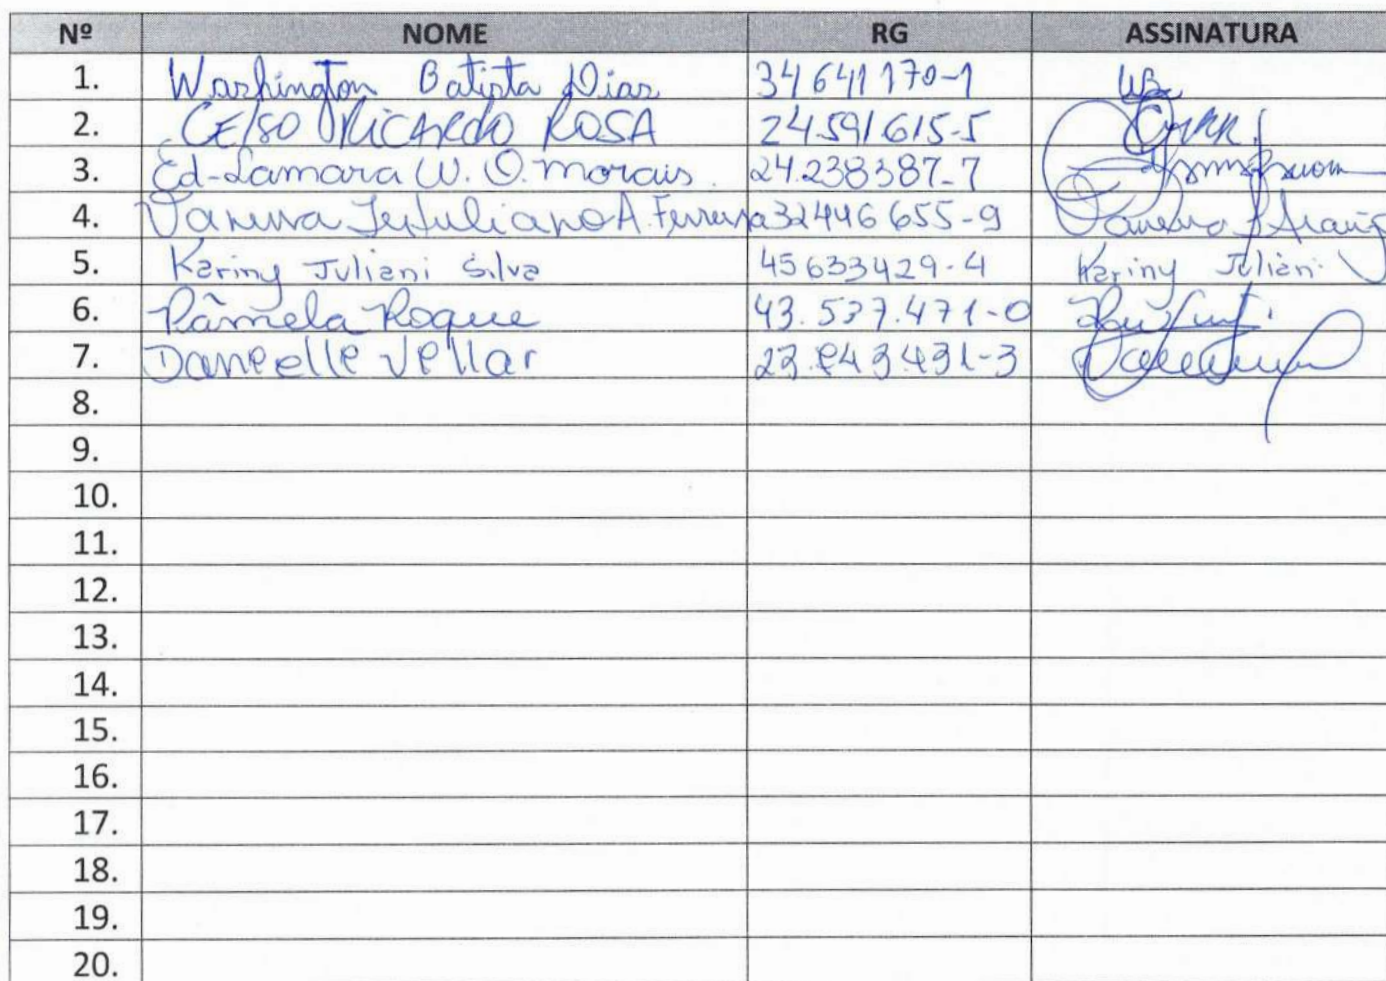 Nº NOME RG ASSINATURA
1. Washington Batista Dias 34641170-1 WB
2. CElSO RICARDO ROSA 24.591615-5
3. Ed-Lamara W. O. Morais. 24.238387-7
4. Vanessa Tertuliano A. Ferreira 32446655-9 Vanessa
5. Kariny Juliani Silva 45633429-4 Kariny Juliani
6. Pâmela Roque 43.537.471-0
7. Danielle Vellar
8.
9.
10.
11.
12.
13.
14.
15.
16.
17.
18.
19.
20.